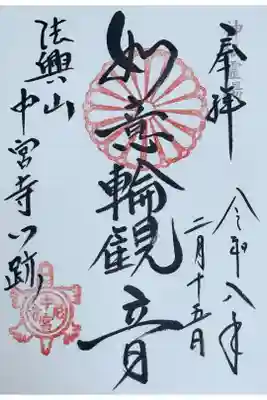 奉拝
令和八年
二月十五日
如意輪観音
法興山
中宮寺門跡